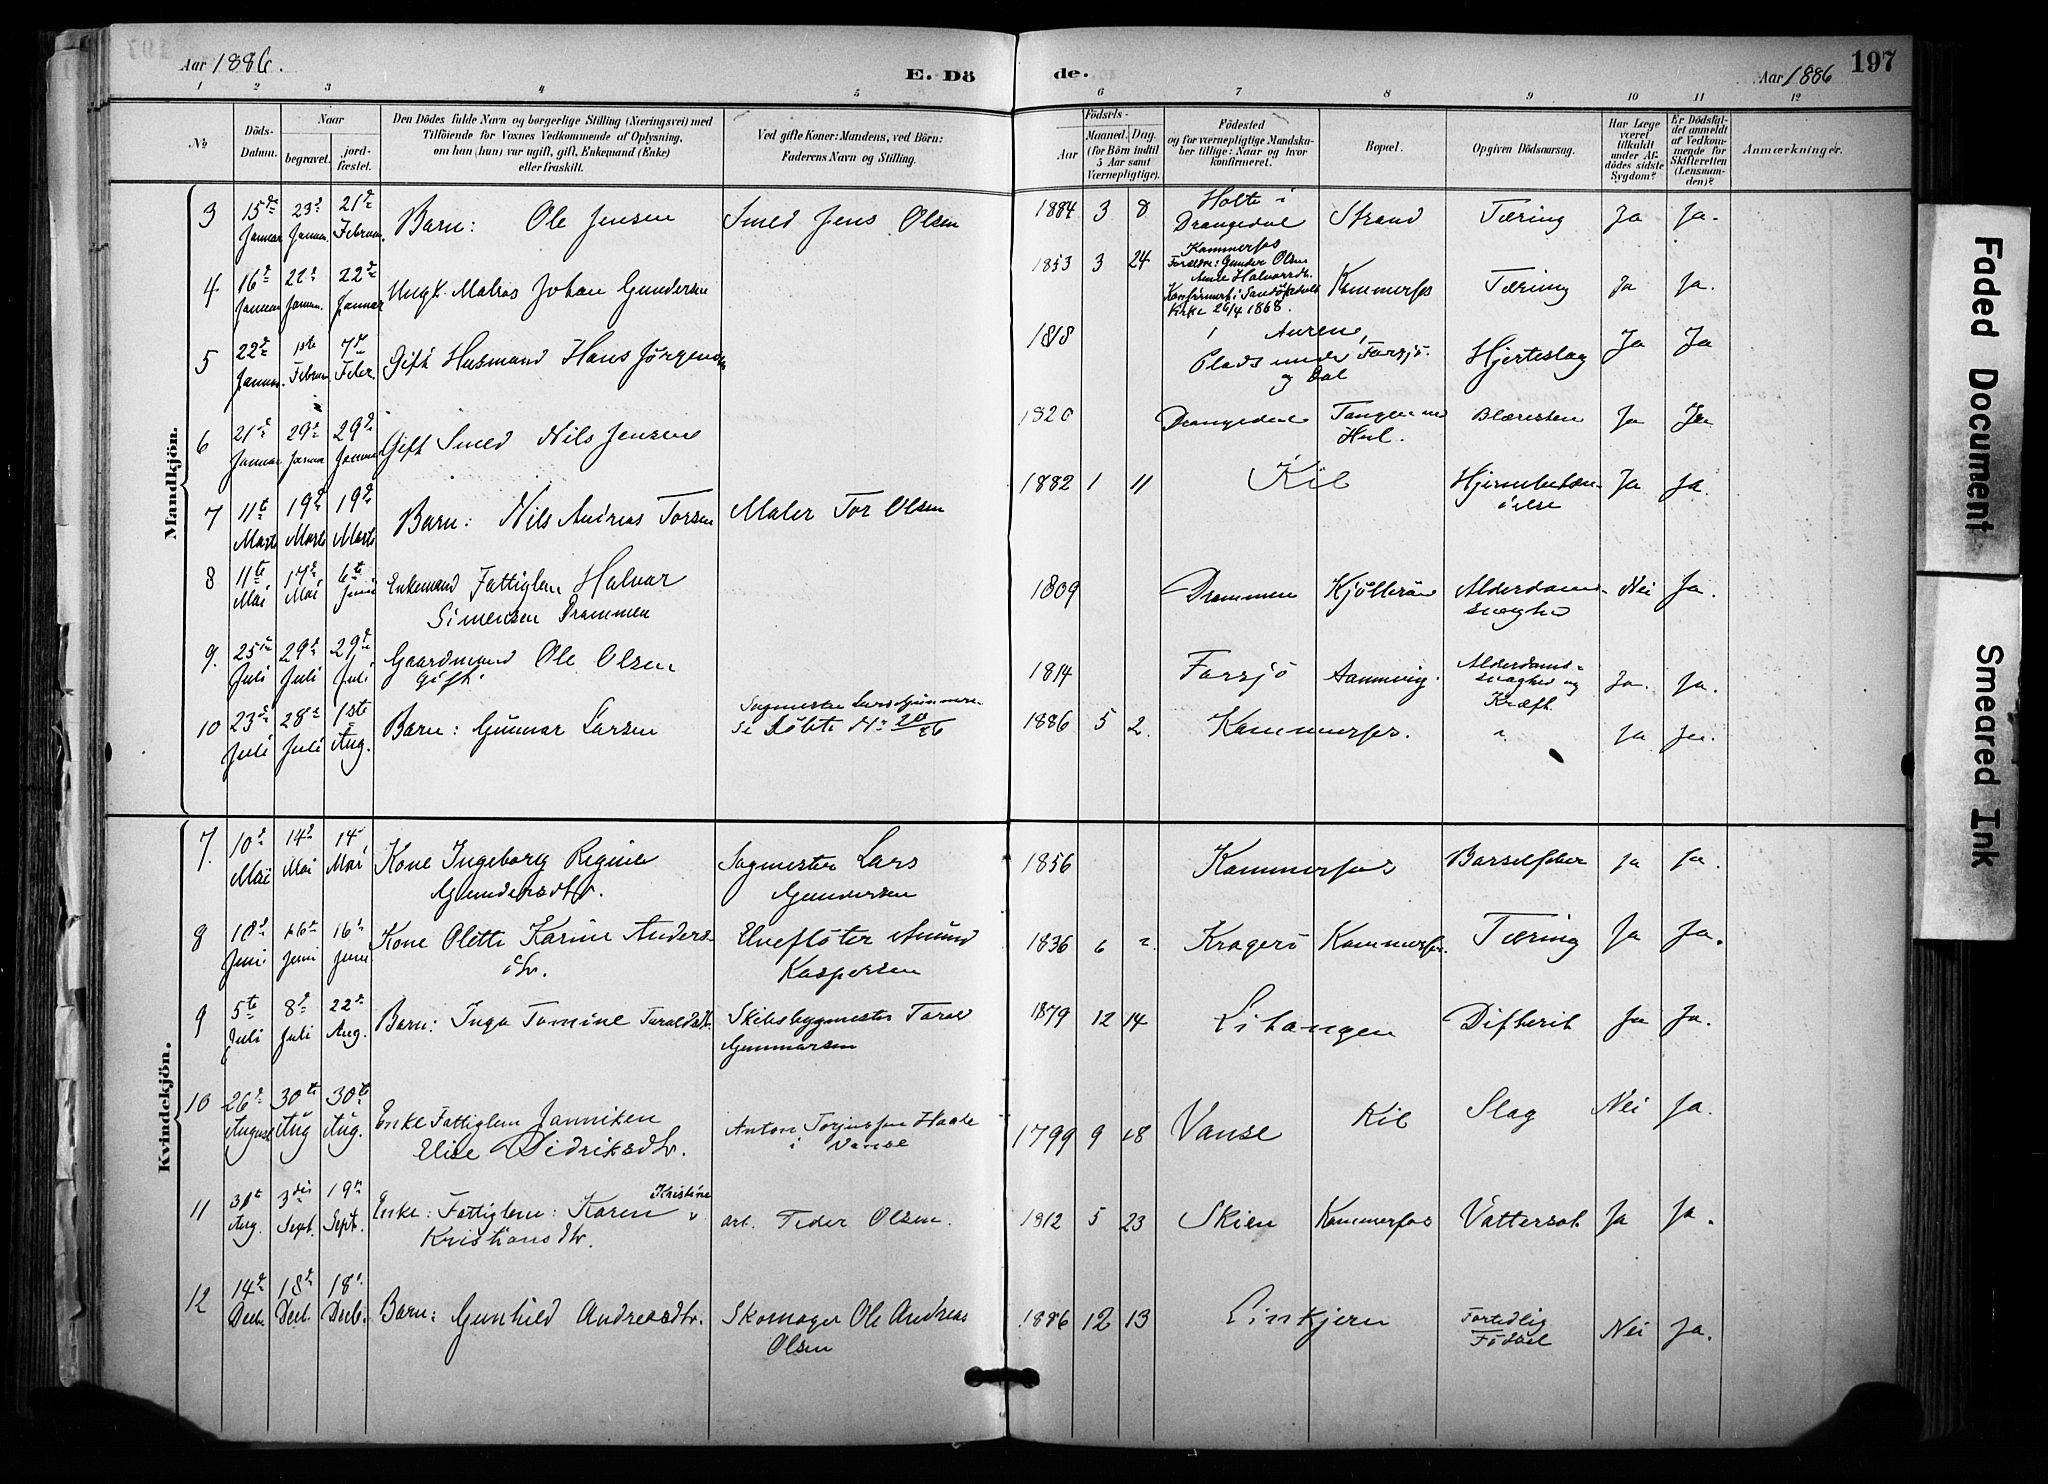 Aar 1886.
E. Dö de.
Aar 1886 197
1 2 3 4 5 6 7 8 9 10 11 12
No
Döds-Datum.
Naar
begravet.
jord-fæstet.
Den Dödes fulde Navn og borgerlige Stilling (Næringsvei) med
Tilföiende for Voxnes Vedkommende af Oplysning,
om han (hun) var ugift, gift, Enkemand (Enke)
eller fraskilt.
Ved gifte Koner: Mandens, ved Börn:
Faderens Navn og Stilling.
Födsels-
Aar
Maaned. Dag.
(for Börn indtil
5 Aar samt
Værnepligtige).
Födested
og for værnepligtige Mandska-
ber tillige: Naar og hvor
konfirmeret.
Bopæl.
Opgiven Dödsaarsag.
Har Læge
været
tilkaldt
under Af-
dödes sidste
Sygdom?
Er Dödsfal-
det anmeldt
af Vedkom-
mende for
Skifteretten
(Lensman-
den)?
Anmærkninger.
Mandkjön.
3 15de Januar 23d Januar 21de Februar Barn: Ole Jensen Smed Jens Olsen 1884 3 8 Holte i Drangedal Strand Tæring Ja Ja.
4 16de Januar 22d Januar 22de Januar Ungk. Matros Johan Gundersen 1853 3 24 Kammerfos
Forældre: Gunder Olsen
Anne Halvorsdtr.
Konfirmert i Sandökedals
Kirke 26/4 1868. Kammerfos Tæring Ja Ja.
5 22de Januar 1ste Februar 7de Febr. Gift Husmand Hans Jörgensen 1818 i Auren,
Plads under Farsjö.
og Dal Hjerteslag Ja Ja
6 21de Januar 29de Januar 29de Januar Gift Smed Nils Jensen 1820 Drangedal Tangen Blæresten Ja Ja
7 11te Marts 19de Marts 19de Marts Barn: Nils Andreas Torsen Maler Tor Olsen 1882 1 11 Kil Hjernebetæn-
delse Ja Ja.
8 11te Mai 17de Mai 6te Juni Enkemand Fattiglem Halvor
Simensen Drammen 1809 Drammen Alderdoms-
svaghed Nei Ja.
9. 25de Juli 29de Juli 29de Juli Gaardmand Ole Olsen
Gift. 1814 Farsjö Alderdoms-
svaghed og
Kræft. Ja. Ja.
10 23de Juli 28de Juli 1ste Aug. Barn: Gunnar Larsen Sagmester Lars
Se Döbte No 20/86 1886 5 2. Kammerfos. Ja Ja.
Kvindekjön.
7. 10de Mai 14de Mai 14 Mai Kone Ingeborg Regine
Gundersdtr. Sagmester Lars
Gundersen 1856 Kammerfos Barselfeber Ja Ja.
8 10de Juni 16de Juni 16de Juni Kone Olette Karine Anders-
dtr. Elvefløter Amund
Kaspersen 1836 6 2. Kragerö Kammerfos. Tæring Ja Ja.
9 5te Juli 8de Juli 22de Aug. Barn: Inga Tomine Taraldsdtr. Skibsbygmester Tarald
Gunnarsen 1879 12 14 Litangen Difterit Ja Ja.
10 26de August 30te Aug 30te Aug. Enke Fattiglem Janniken
Elise Didriksdtr. Anton Torjussen Haale
i Vanse 1799 9 18 Vanse Kil Slag Nei Ja.
11 31te Aug. 3die Sept. 19de Sept. Enke: Fattiglem: Karen Kristine
Kristiansdtr. arb. Peder Olsen. 1812 5 23 Skien Kammerfos Vattersot Ja Ja.
12 14de Decb. 18de Decb. 18de Decb. Barn: Gunhild Andreasdtr. Skomager Ole Andreas
Olsen 1886 12 13 Linkjern Fortidlig
Födsel Nei Ja.
Faded Document
Smeared Ink